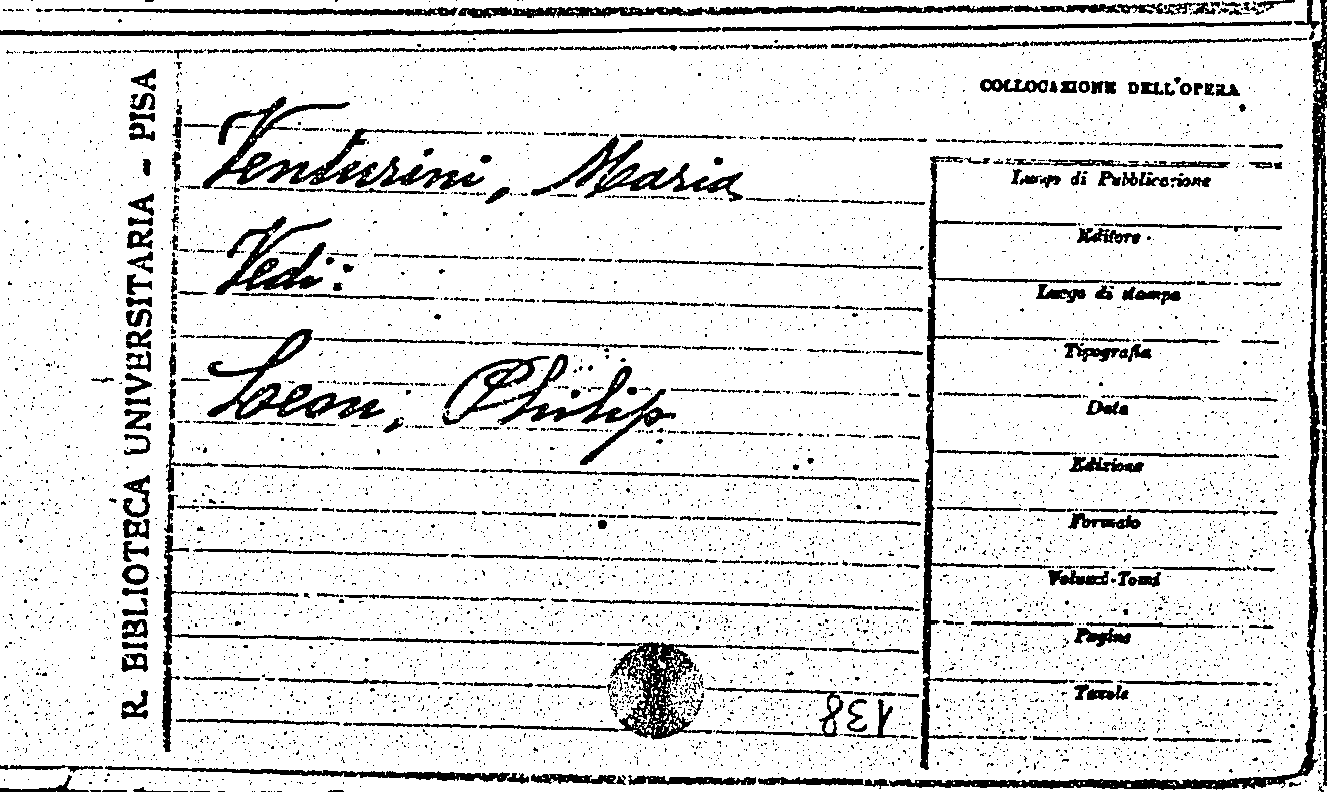 R. BIBLIOTECA UNIVERSITARIA - PISA
COLLOCAZIONE DELL'OPERA
Venturini, Maria
Vedi:
Leon, Philip
Luogo di Pubblicazione
Editore
Luogo di stampa
Tipografia
Data
Edizione
Formato
Volumi-Tomi
Pagine
Tavole
138